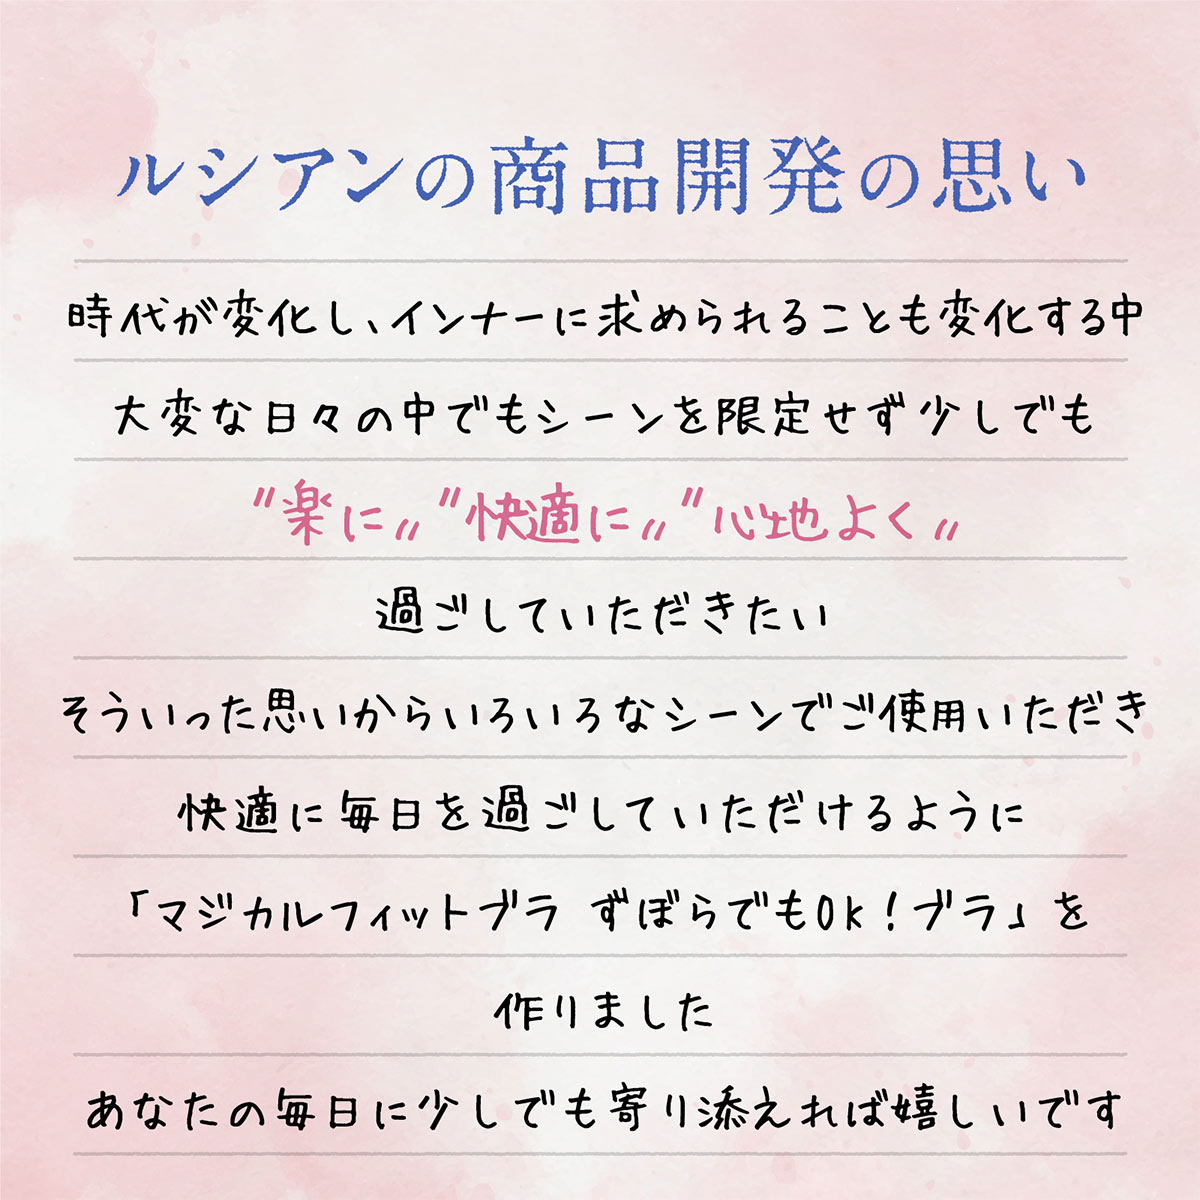 ルシアンの商品開発の思い
時代が変化し、インナーに求められることも変化する中
大変な日々の中でもシーンを限定せず少しでも
〝楽に〟〝快適に〟〝心地よく〟
過ごしていただきたい
そういった思いからいろいろなシーンでご使用いただき
快適に毎日を過ごしていただけるように
「マジカルフィットブラ ずぼらでもOk！ブラ」を
作りました
あなたの毎日に少しでも寄り添えれば嬉しいです